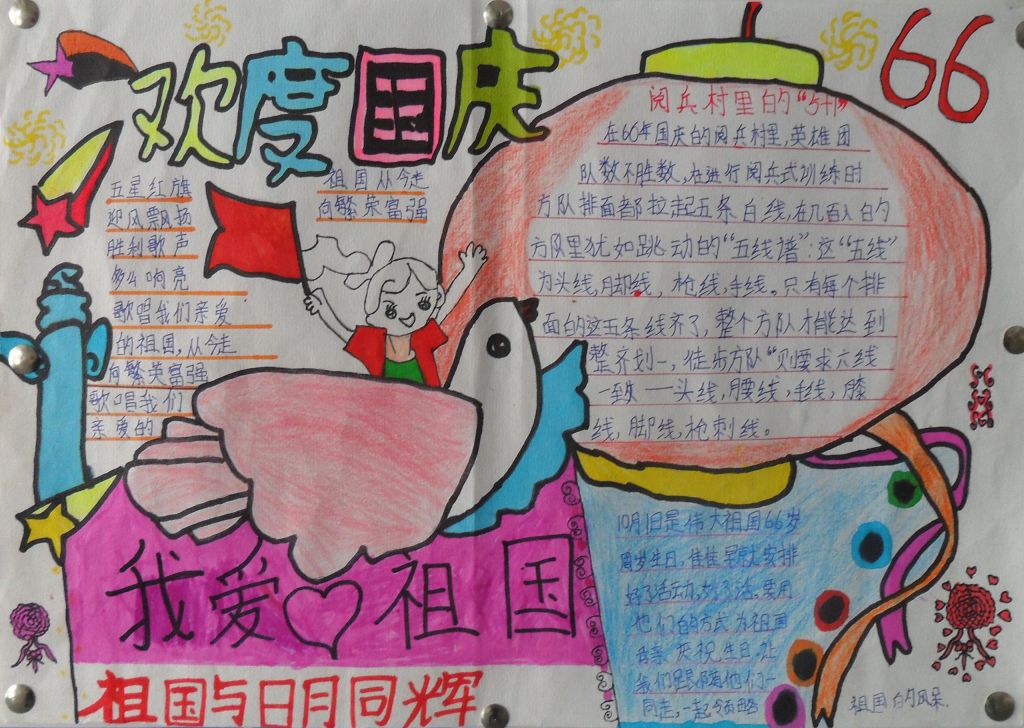 欢度国庆
66
五星红旗
迎风飘扬
胜利歌声
多么响亮
歌唱我们亲爱
的祖国，从今走
向繁荣富强
歌唱我们
亲爱的
祖国从今走
向繁荣富强
阅兵村里的“5+1”
在60年国庆的阅兵村里，英雄团
队数不胜数，在进行阅兵式训练时
方队排面都拉起五条白线，在几百人的
方队里犹如跳动的“五线谱”：这“五线”
为头线，脚线，枪线，手线。只有每个排
面的这五条线齐了，整个方队才能达到
整齐划一，徒步方队“则要求六线
一致——头线，腰线，手线，膝
线，脚线，枪刺线。
我爱祖国
祖国与日月同辉
10月1日是伟大祖国66岁
周岁生日，佳佳早就安排
好了活动，好了活，要用
他们的方式为祖国
母亲庆祝生日，让
我们跟随他们一
同走，一起领略
祖国的风采.